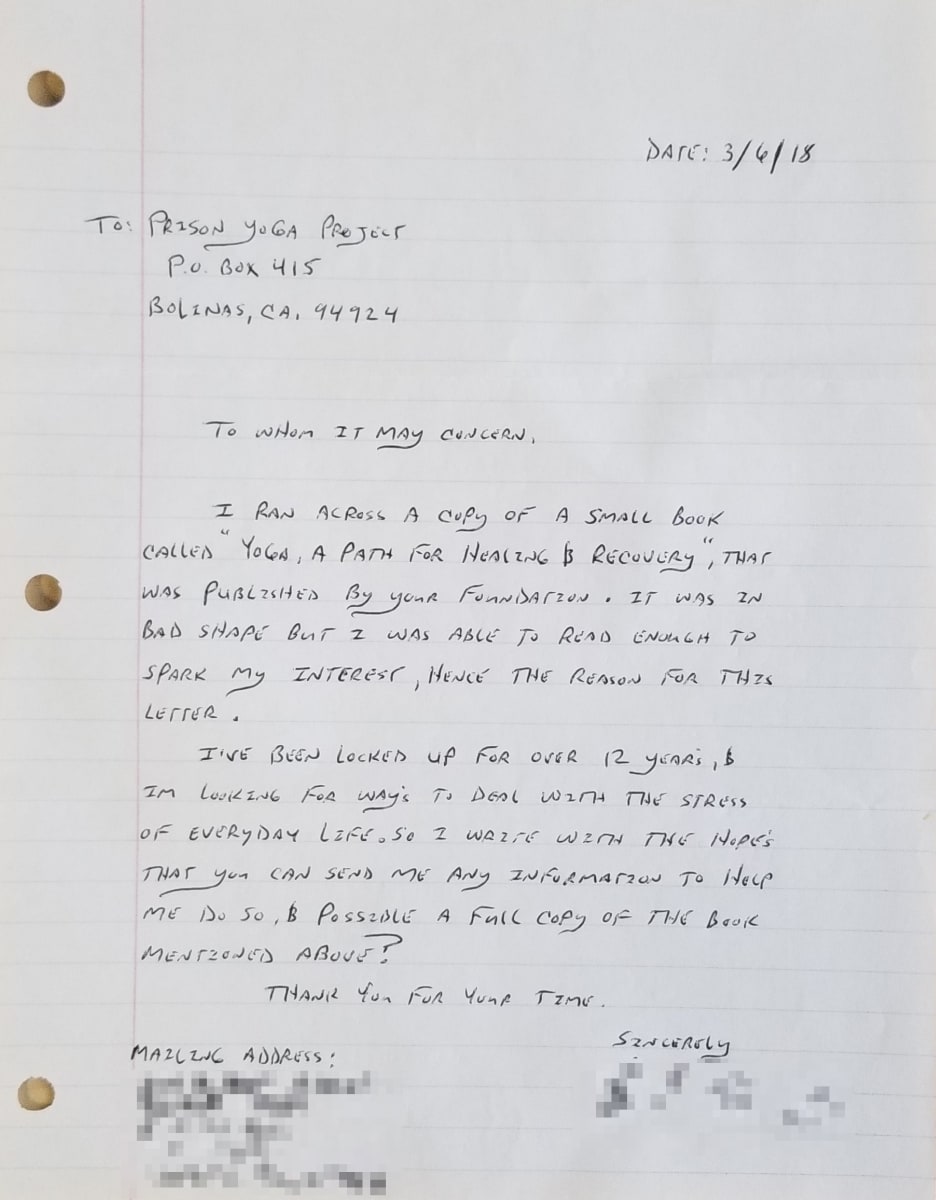 DATE: 3/6/18
TO: PRISON YOGA PROJECT
P.O. BOX 415
BOLINAS, CA. 94924
TO WHOM IT MAY CONCERN,
I RAN ACROSS A COPY OF A SMALL BOOK
CALLED "YOGA, A PATH FOR HEALING & RECOVERY", THAT
WAS PUBLISHED BY YOUR FOUNDATION. IT WAS IN
BAD SHAPE BUT I WAS ABLE TO READ ENOUGH TO
SPARK MY INTEREST, HENCE THE REASON FOR THIS
LETTER.
I'VE BEEN LOCKED UP FOR OVER 12 YEAR'S, &
IM LOOKING FOR WAY'S TO DEAL WITH THE STRESS
OF EVERYDAY LIFE. SO I WRITE WITH THE HOPE'S
THAT YOU CAN SEND ME ANY INFORMATION TO HELP
ME DO SO, & POSSIBLE A FULL COPY OF THE BOOK
MENTIONED ABOVE?
THANK YOU FOR YOUR TIME.
SINCERELY
MAILING ADDRESS: